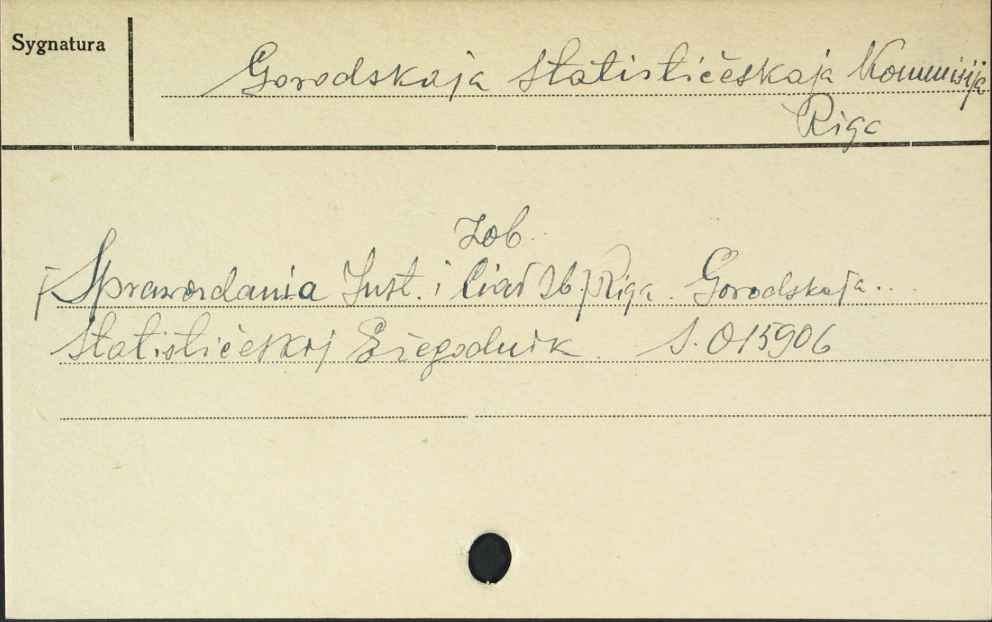 Sygnatura
Gorodskaja Statističeskaja Kommisija
Riga
Zob.
[Sprawozdania Inst. i Ciał Zb.] Riga. Gorodskaja...
Statističeskij Ežegodnik. S. 015906